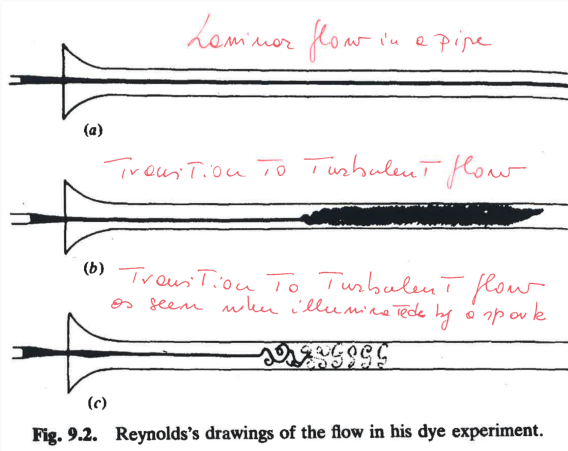 Laminar flow in a pipe
(a)
Transition To Turbulent flow
(b)
Transition To Turbulent flow
as seen when illuminated by a spark
(c)
Fig. 9.2. Reynolds's drawings of the flow in his dye experiment.